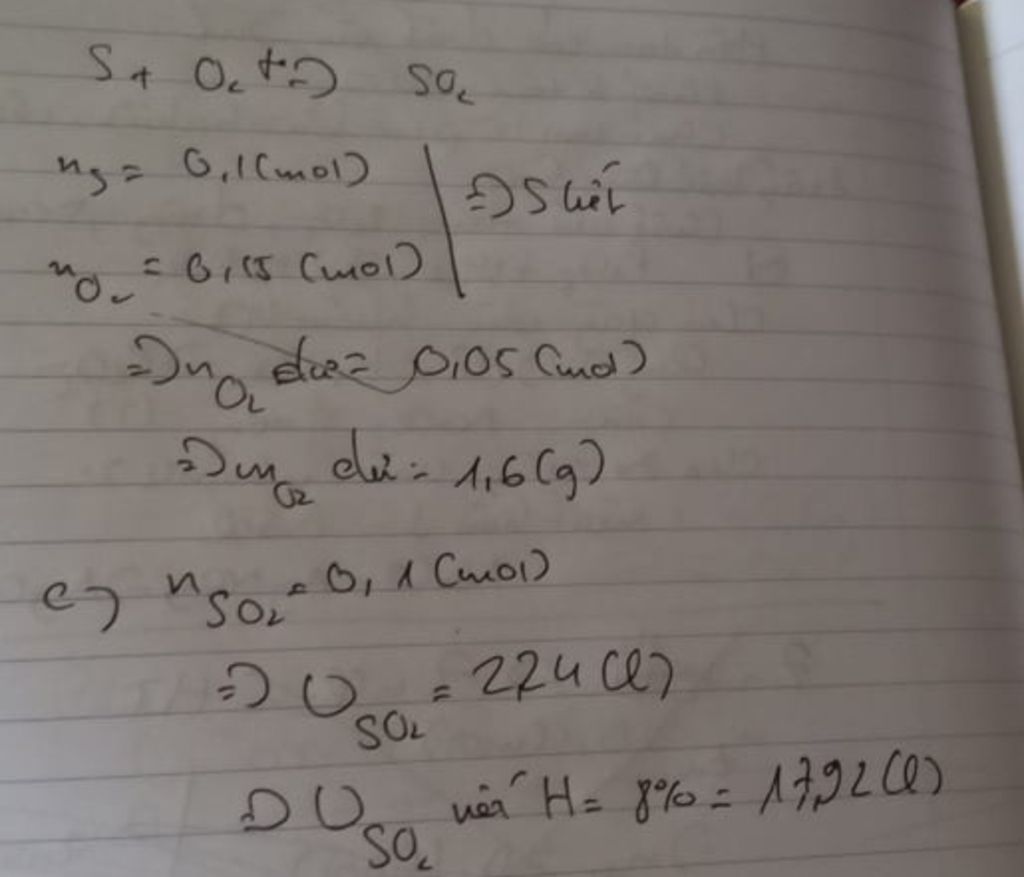 S + O₂ t°=> SO₂
nS = 0,1 (mol) | => S hết
nO₂ = 0,15 (mol)
=> nO₂ dư = 0,05 (mol)
=> mO₂ dư = 1,6 (g)
c) nSO₂ = 0,1 (mol)
=> VSO₂ = 2,24 (l)
=> VSO₂ nếu H = 8% = 1,792 (l)